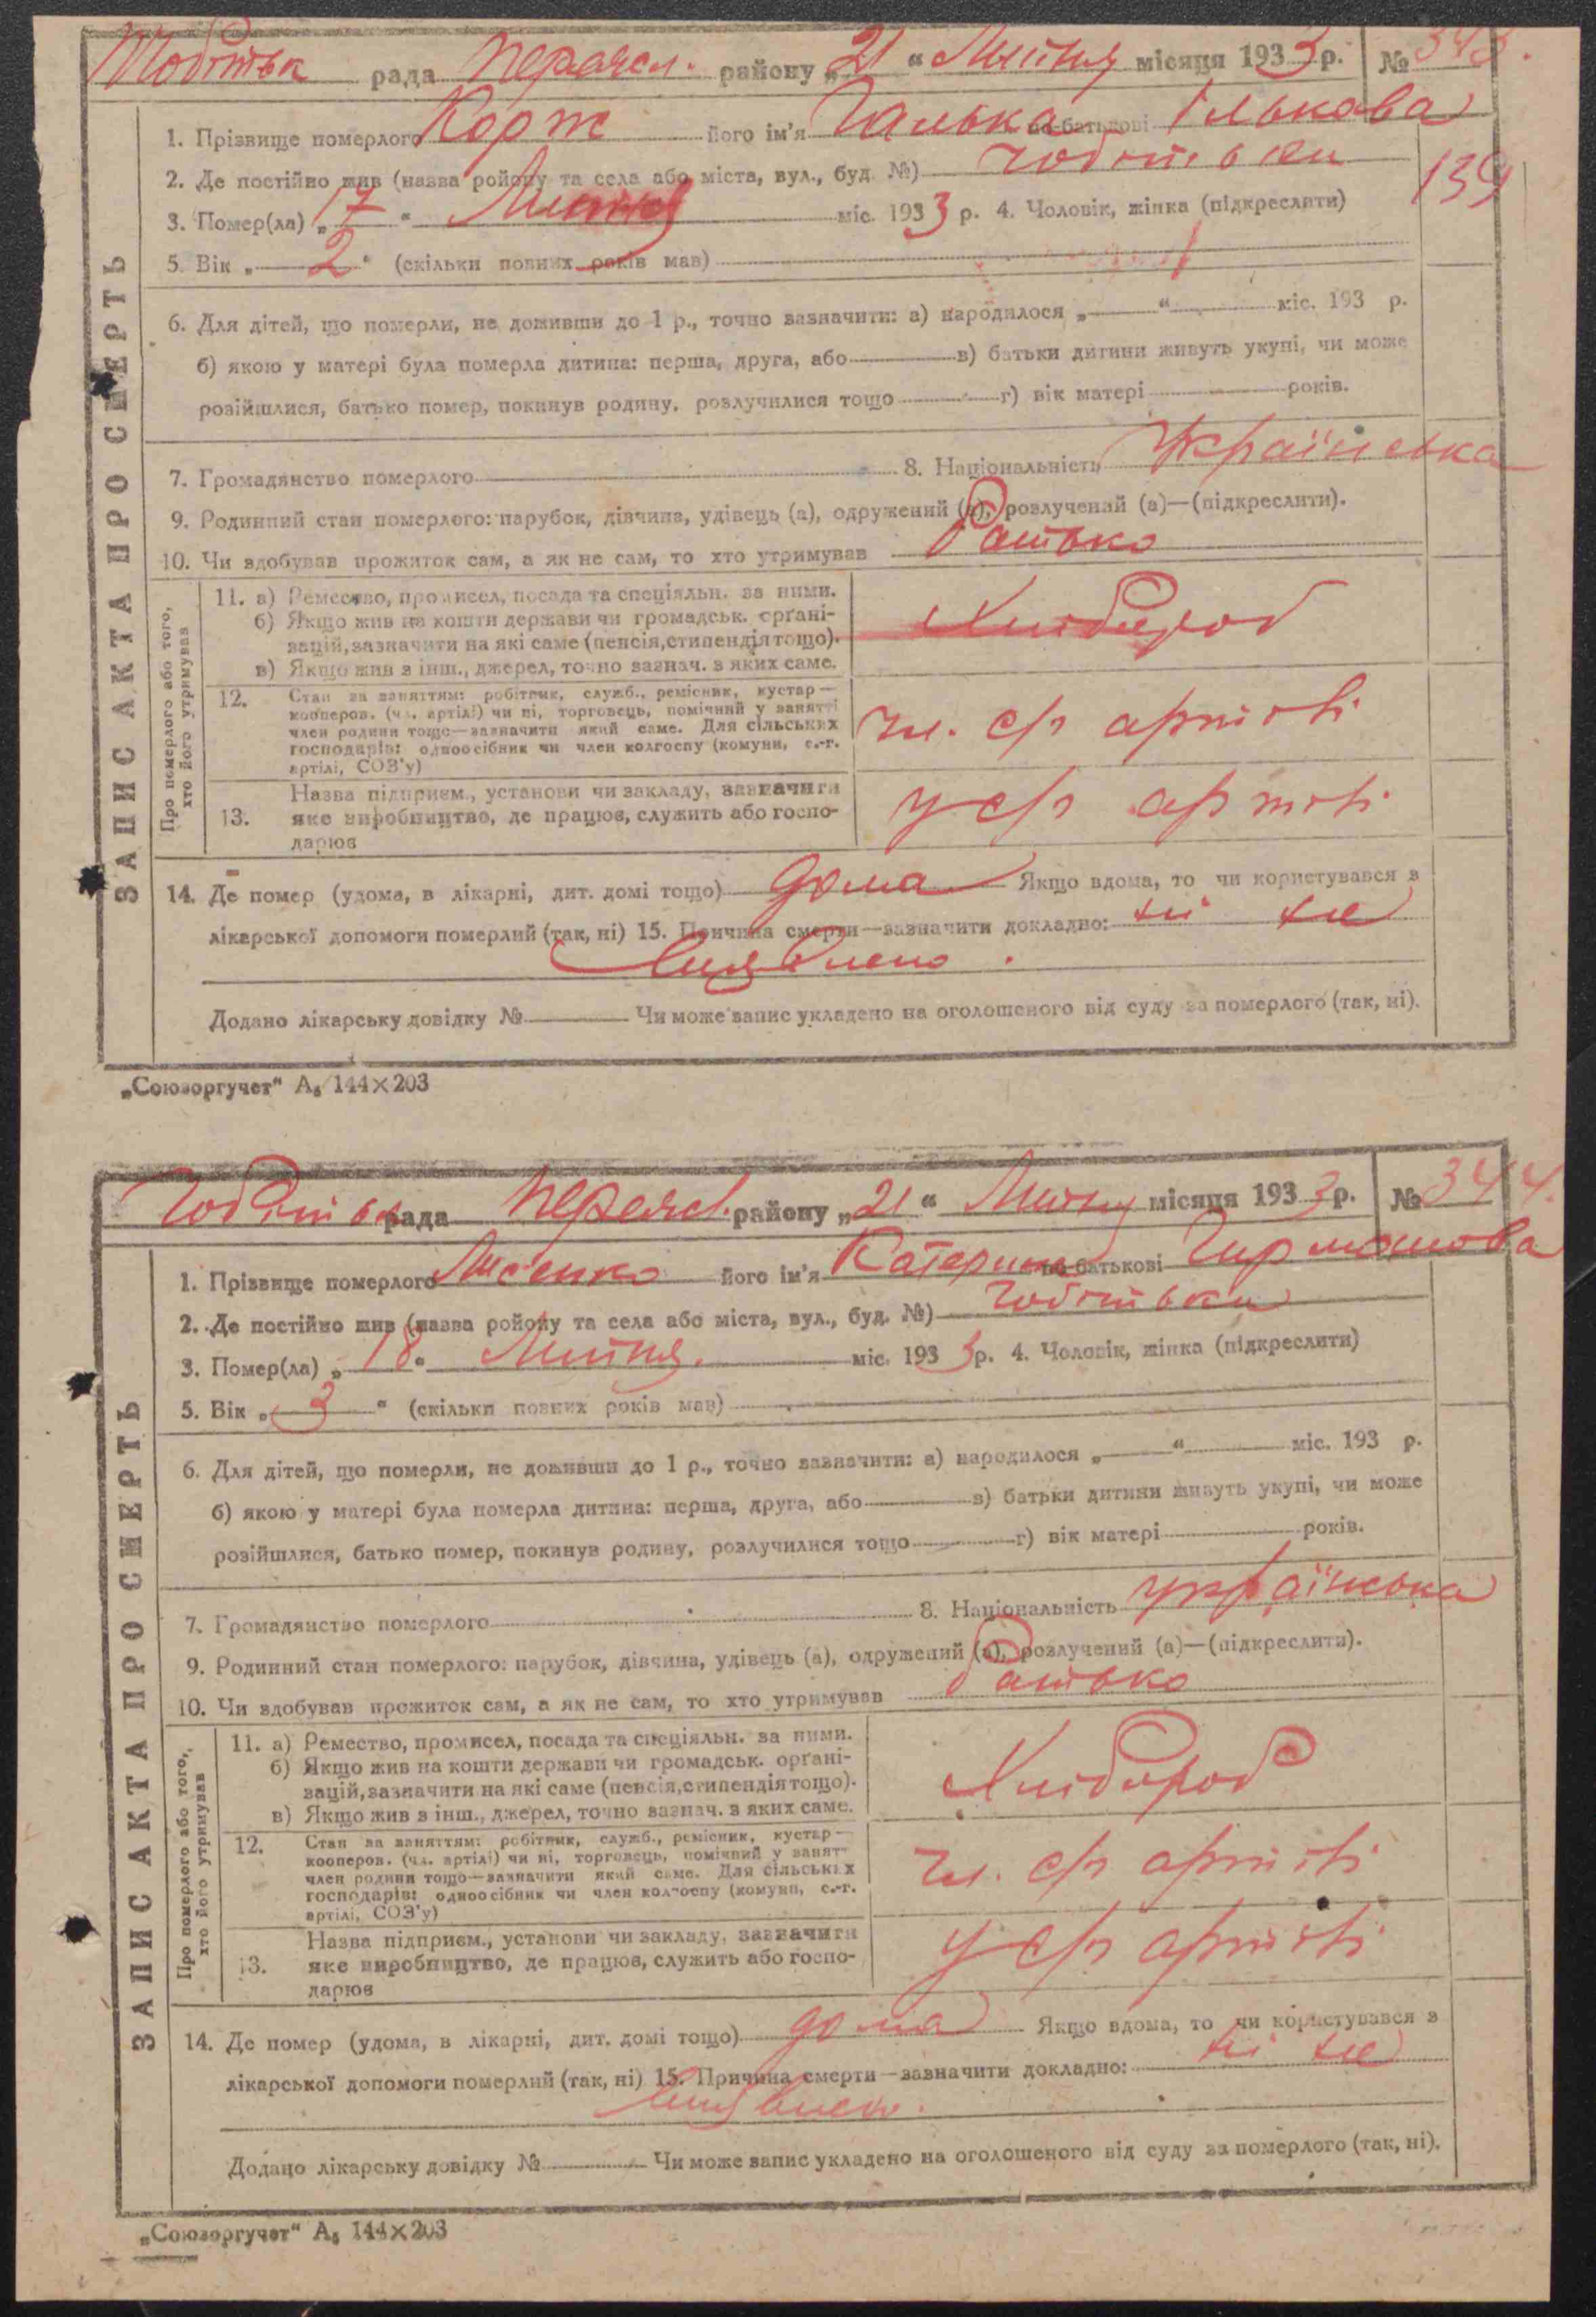 Чобітьк рада Переясл. району „21“ Липня місяця 1933 р. № 343.
1. Прізвище померлого Корж його ім'я Галька по-батькові Ількова
2. Де постійно жив (назва ройону та села або міста, вул., буд. №) Чобітьки
139
3. Помер(ла) „17“ Липня міс. 1933 р. 4. Чоловік, жінка (підкреслити)
5. Вік „2“ (скільки повних років мав)
6. Для дітей, що померли, не доживши до 1 р., точно зазначити: а) народилося „ “ міс. 193 р.
б) якою у матері була померла дитина: перша, друга, або в) батьки дитини живуть укупі, чи може
розійшлися, батько помер, покинув родину, розлучилися тощо г) вік матері років.
7. Громадянство померлого 8. Національність Українська
9. Родинний стан померлого: парубок, дівчина, удівець (а), одружений (а), розлучений (а)—(підкреслити).
10. Чи здобував прожиток сам, а як не сам, то хто утримував батько
ЗАПИС АКТА ПРО СМЕРТЬ
Про померлого або того, хто його утримував
11. а) Ремество, промисел, посада та спеціяльн. за ними.
б) Якщо жив на кошти держави чи громадськ. орґані-
зацій, зазначити на які саме (пенсія, стипендія тощо).
в) Якщо жив з інш., джерел, точно зазнач. з яких саме.
Хлібороб
12. Стан за заняттям: робітник, служб., ремісник, кустар—
кооперов. (чл. артілі) чи ні, торговець, помічний у занятті
член родини тощо—зазначити який саме. Для сільських
господарів: одноосібник чи член колгоспу (комуни, с.-г.
артілі, СОЗ'у)
чл. с/г артілі
13. Назва підприєм., установи чи закладу, зазначити
яке виробництво, де працює, служить або госпо-
дарює
у с/г артілі
14. Де помер (удома, в лікарні, дит. домі тощо) дома Якщо вдома, то чи користувався з
лікарської допомоги померлий (так, ні) 15. Причина смерти—зазначити докладно: ні не
Виявлено.
Додано лікарську довідку № Чи може запис укладено на оголошеного від суду за померлого (так, ні).
„Союзоргучет“ А₅ 144×203
Чобітьк рада Переясл. району „21“ Липня місяця 1933 р. № 344.
1. Прізвище померлого Лисенко його ім'я Катерина по-батькові
2. Де постійно жив (назва ройону та села або міста, вул., буд. №) Чобітьки
3. Помер(ла) „18“ Липня. міс. 1933 р. 4. Чоловік, жінка (підкреслити)
5. Вік „3“ (скільки повних років мав)
6. Для дітей, що померли, не доживши до 1 р., точно зазначити: а) народилося „ “ міс. 193 р.
б) якою у матері була померла дитина: перша, друга, або в) батьки дитини живуть укупі, чи може
розійшлися, батько помер, покинув родину, розлучилися тощо г) вік матері років.
7. Громадянство померлого 8. Національність українська
9. Родинний стан померлого: парубок, дівчина, удівець (а), одружений (а), розлучений (а)—(підкреслити).
10. Чи здобував прожиток сам, а як не сам, то хто утримував батько
ЗАПИС АКТА ПРО СМЕРТЬ
Про померлого або того, хто його утримував
11. а) Ремество, промисел, посада та спеціяльн. за ними.
б) Якщо жив на кошти держави чи громадськ. орґані-
зацій, зазначити на які саме (пенсія, стипендія тощо).
в) Якщо жив з інш., джерел, точно зазнач. з яких саме.
Хлібороб
12. Стан за заняттям: робітник, служб., ремісник, кустар—
кооперов. (чл. артілі) чи ні, торговець, помічний у занят-
член родини тощо—зазначити який саме. Для сільських
господарів: одноосібник чи член колгоспу (комуни, с.-г.
артілі, СОЗ'у)
чл. с/г артілі
13. Назва підприєм., установи чи закладу, зазначити
яке виробництво, де працює, служить або госпо-
дарює
у с/г артілі
14. Де помер (удома, в лікарні, дит. домі тощо) дома Якщо вдома, то чи користувався з
лікарської допомоги померлий (так, ні) 15. Причина смерти—зазначити докладно: ні не
Виявлено.
Додано лікарську довідку № Чи може запис укладено на оголошеного від суду за померлого (так, ні).
„Союзоргучет“ А₅ 144×203